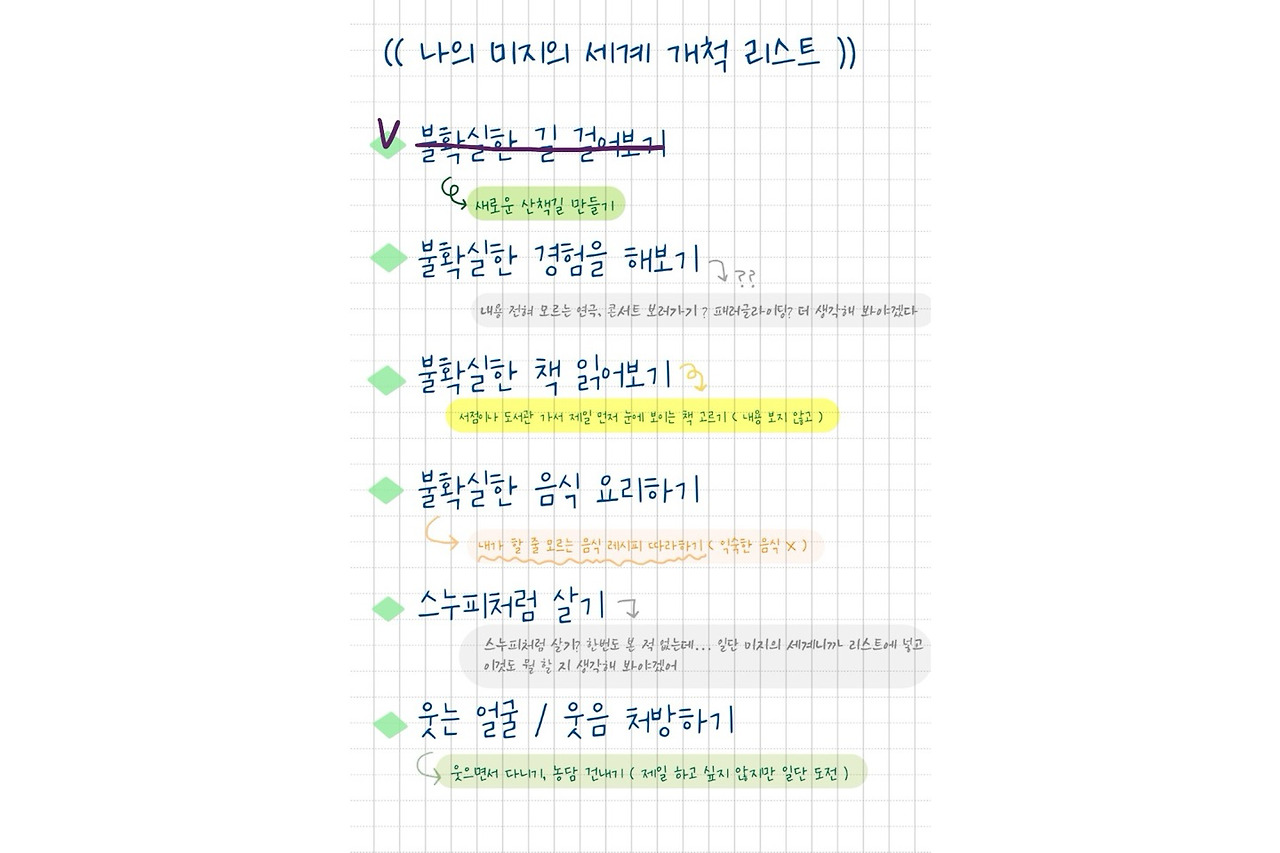 (( 나의 미지의 세계 개척 리스트 ))
V 불확실한 길 걸어보기
새로운 산책길 만들기
불확실한 경험을 해보기
??
내용 전혀 모르는 연극, 콘서트 보러가기? 패러글라이딩? 더 생각해 봐야겠다
불확실한 책 읽어보기
서점이나 도서관 가서 제일 먼저 눈에 보이는 책 고르기 ( 내용 보지 않고 )
불확실한 음식 요리하기
내가 할 줄 모르는 음식 레시피 따라하기 ( 익숙한 음식 X )
스누피처럼 살기
스누피처럼 살기? 한번도 본 적 없는데... 일단 미지의 세계니까 리스트에 넣고
이것도 뭘 할 지 생각해 봐야겠어
웃는 얼굴 / 웃음 처방하기
웃으면서 다니기, 농담 건내기 ( 제일 하고 싶지 않지만 일단 도전 )